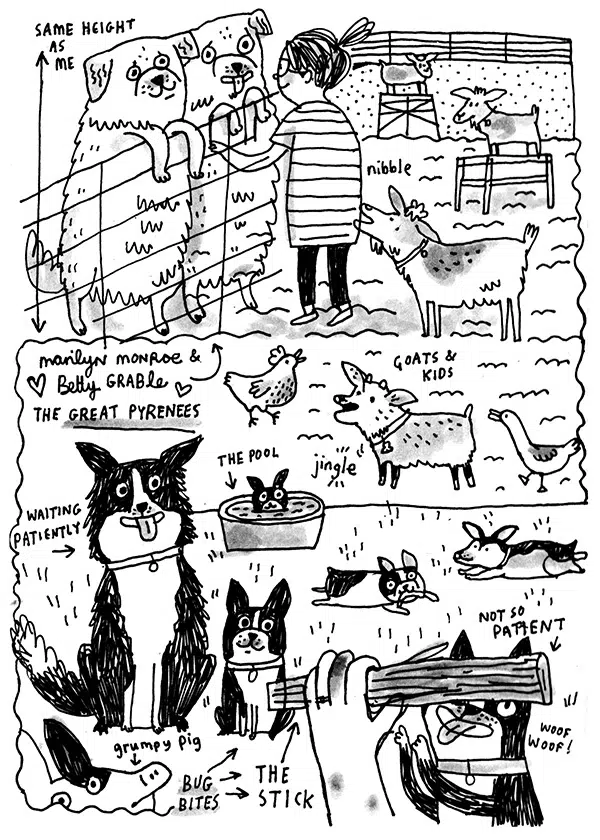 SAME HEIGHT
AS
ME
nibble
marilyn monroe &
Betty GRABLE
THE GREAT PYRENEES
GOATS &
KIDS
jingle
THE POOL
WAITING
PATIENTLY
NOT SO
PATIENT
WOOF
WOOF!
grumpy pig
BUG
BITES
THE
STICK